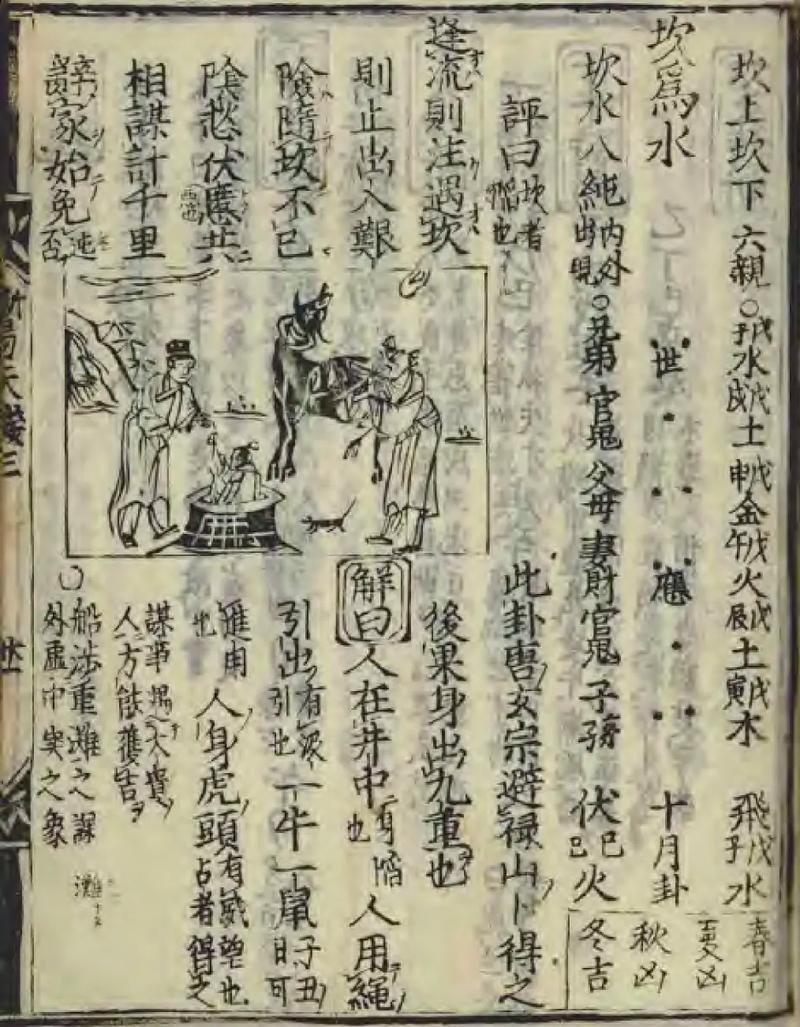 坎上坎下 六親○戊子水戊戌土戊申金戊午火戊辰土戊寅木 飛戊子水
坎為水 世 應 十月卦
春吉
夏凶
秋凶
冬吉
坎水八純內外出現○兄弟官鬼父母妻財官鬼子孫 伏己巳火
評曰坎者陷也
逢流則注遇坎
則止出入艱
險隨坎不已
陰愁伏匿共
相謀計千里
辭家始免迍否
此卦唐玄宗避祿山卜得之
後果身出九重也
解曰人在井中身陷也人用繩
引出有汲引也一牛一鼠子丑日可
進用也人身虎頭有威望也占者得之
謀事遇大貴人方能獲吉
船涉重灘之課
外虛中実之象
灘